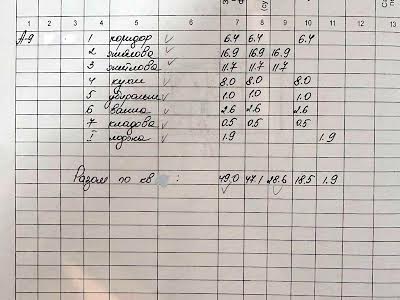 1 2 3 4 5 6 7 8 9 10 11 12 13
А-9 1 коридор 6.4 6.4 6.4
2 житлова 16.9 16.9 16.9
3 житлова 11.7 11.7 11.7
4 кухня 8.0 8.0 8.0
5 1.0 1.0 1.0
6 ванна 2.6 2.6 2.6
7 кладова 0.5 0.5 0.5
I лоджа 1.9 1.9
Разом по кв : 49,0 47.1 28.6 18.5 1.9